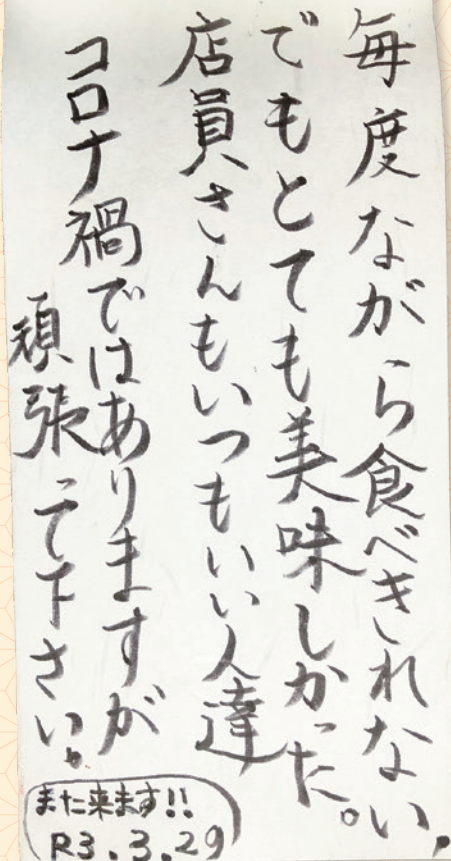 毎度ながら食べきれない,
でもとても美味しかった。
店員さんもいつもいい人達
コロナ禍ではありますが
頑張って下さい。
また来ます!!
R3.3.29